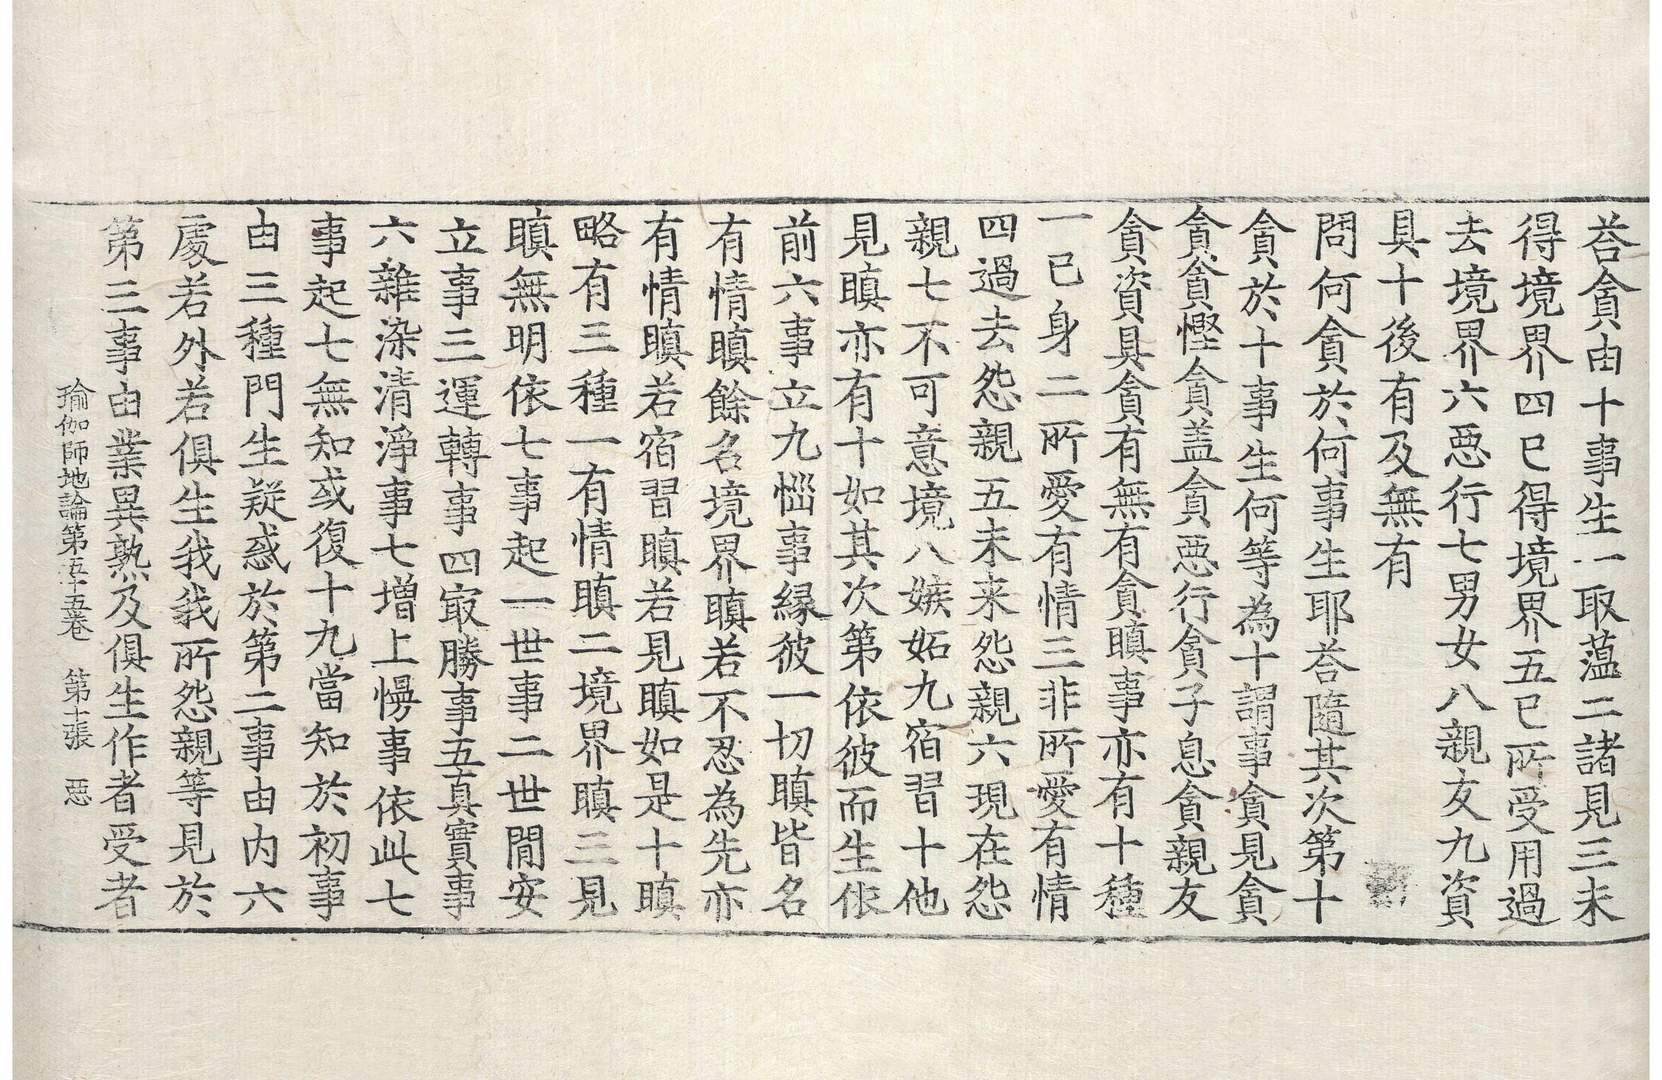 荅貪由十事生一取蘊二諸見三未
得境界四巳得境界五巳所受用過
去境界六惡行七男女八親友九資
具十後有及無有
問何貪於何事生耶荅隨其次第十
貪於十事生何等為十謂事貪見貪
貪貪慳貪盖貪惡行貪子息貪親友
貪資具貪有無有貪瞋事亦有十種
一巳身二所愛有情三非所愛有情
四過去怨親五未来怨親六現在怨
親七不可意境八嫉妬九宿習十他
見瞋亦有十如其次第依彼而生依
前六事立九惱事縁彼一切瞋皆名
有情瞋餘名境界瞋若不忍為先亦
有情瞋若宿習瞋若見瞋如是十瞋
略有三種一有情瞋二境界瞋三見
瞋無明依七事起一世事二世間安
立事三運轉事四㝡勝事五真實事
六雜染清淨事七增上慢事依此七
事起七無知或復十九當知於初事
由三種門生疑惑於第二事由内六
處若外若俱生我我所怨親等見於
第三事由業異熟及俱生作者受者
瑜伽師地論第五十五卷　第十張　惡